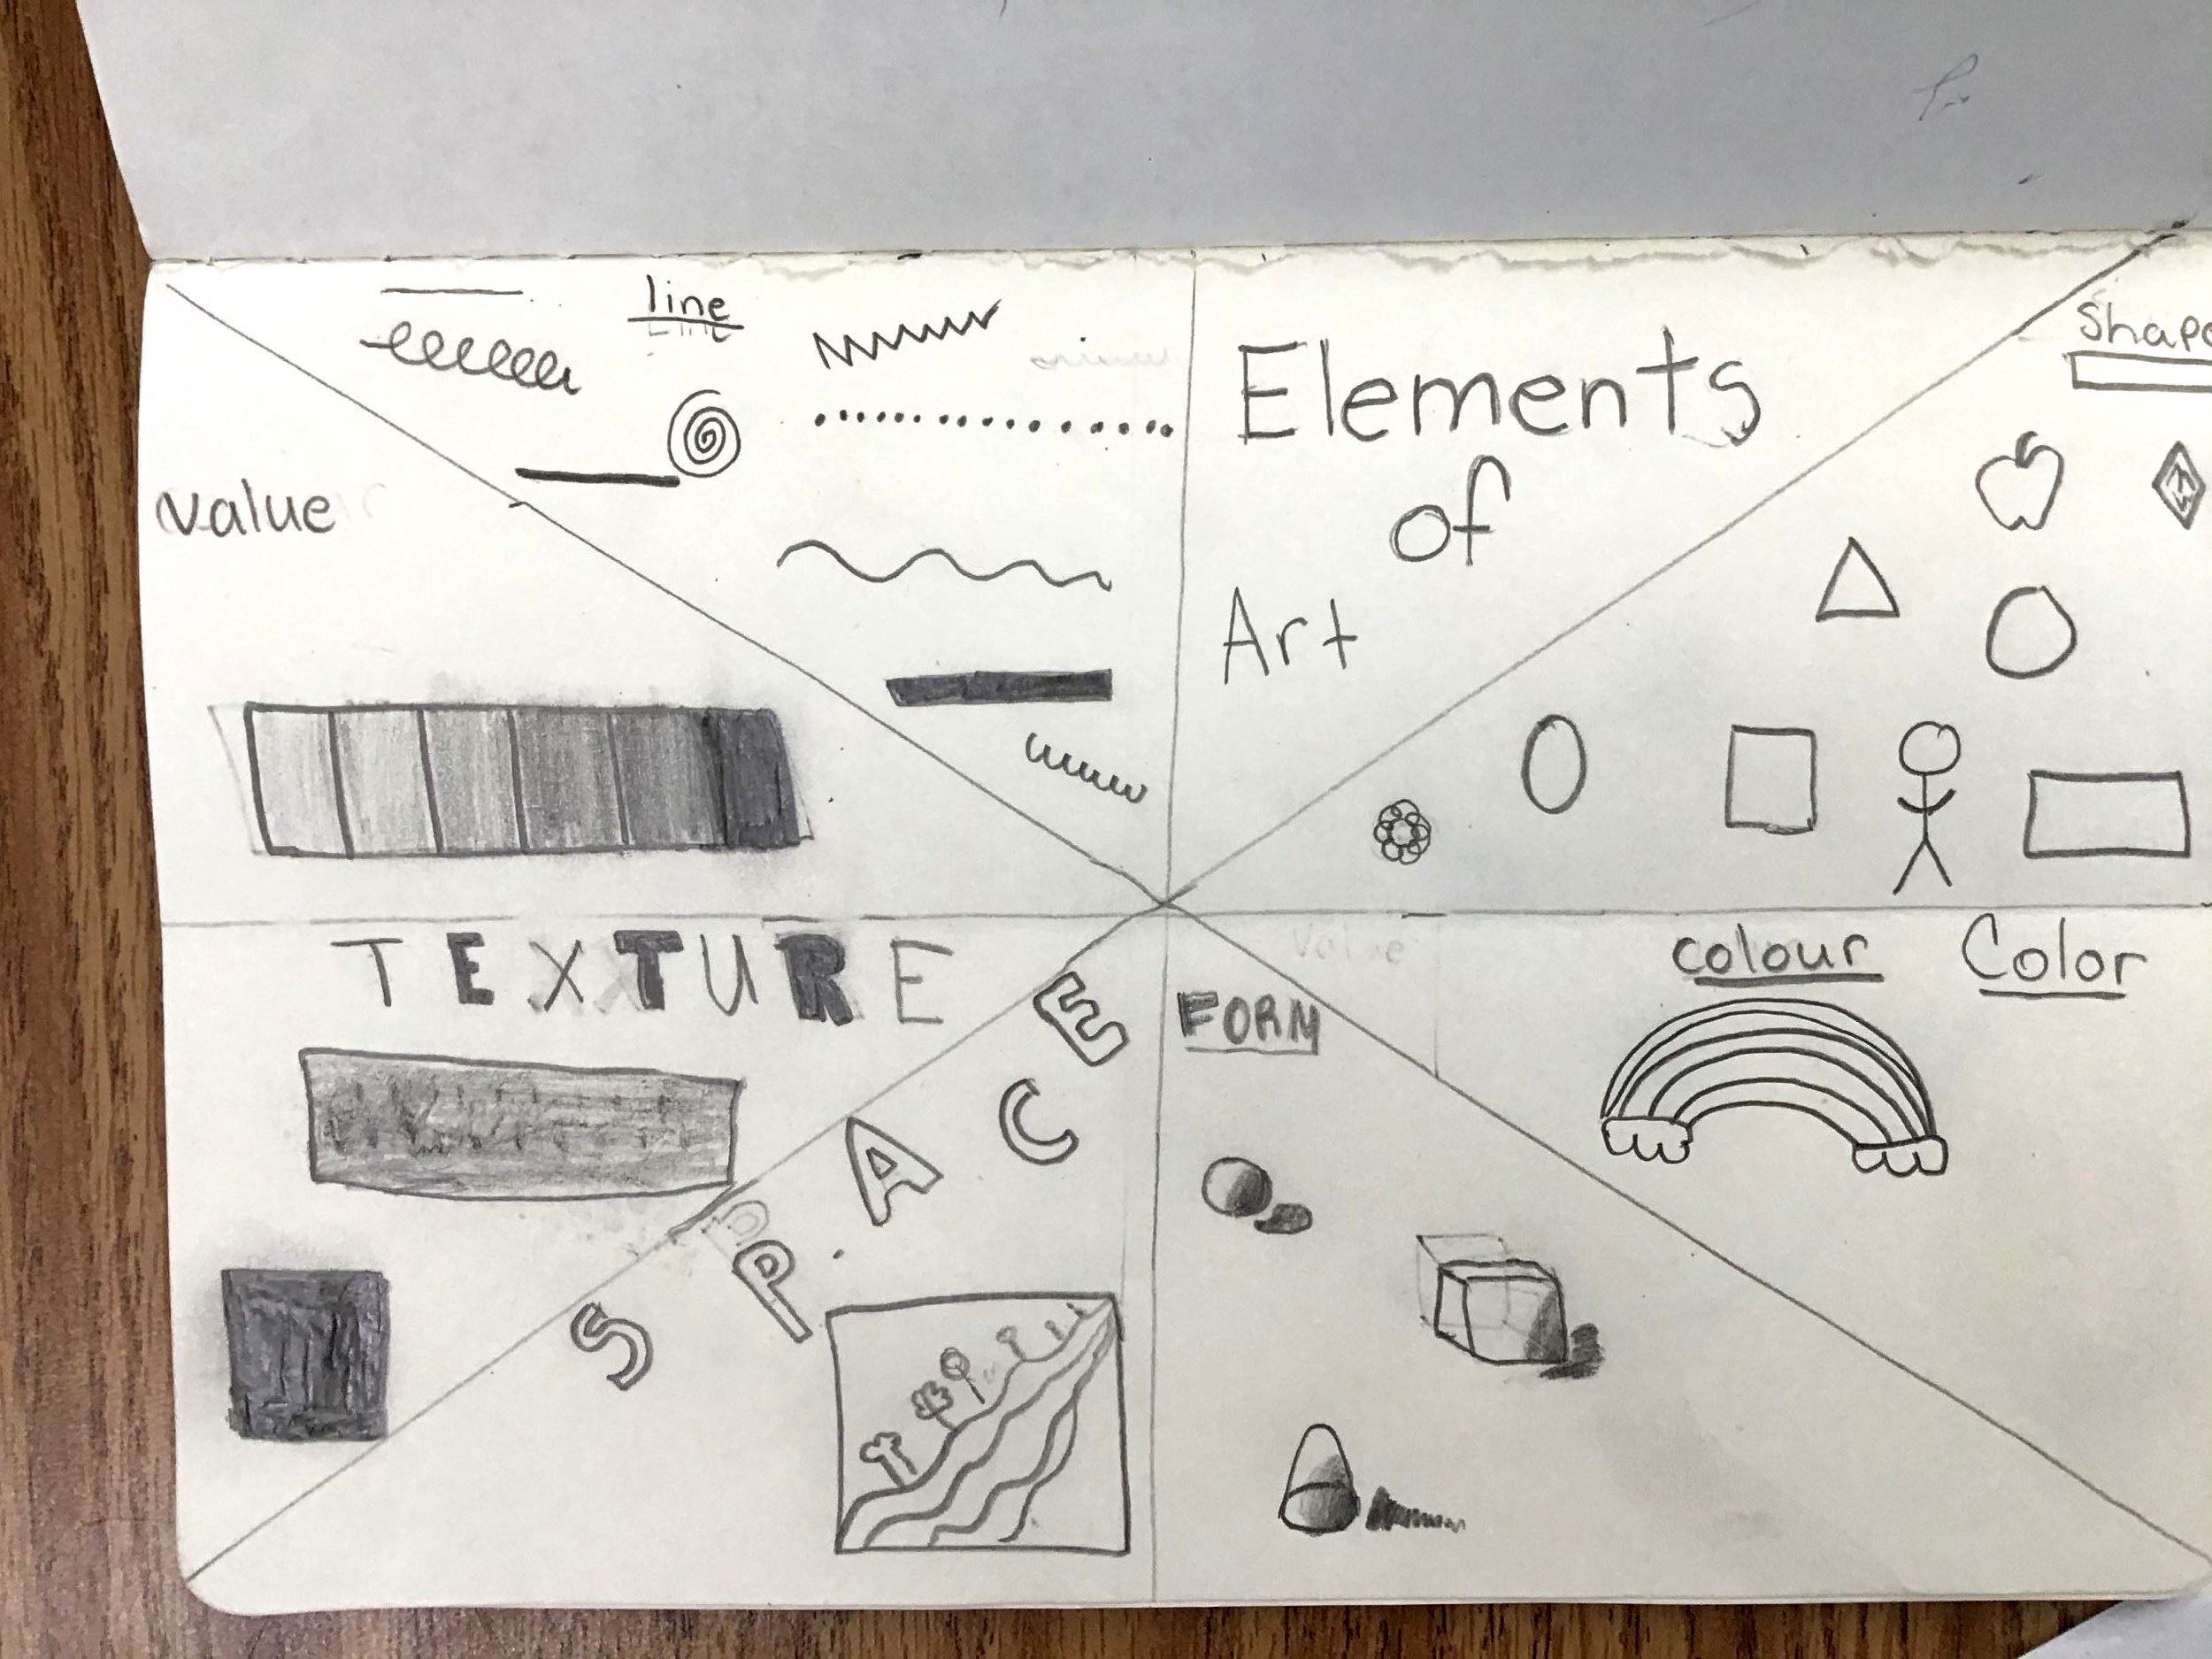 line
Elements
of
Art
Shape
value
TEXTURE
SPACE
FORM
colour Color
value